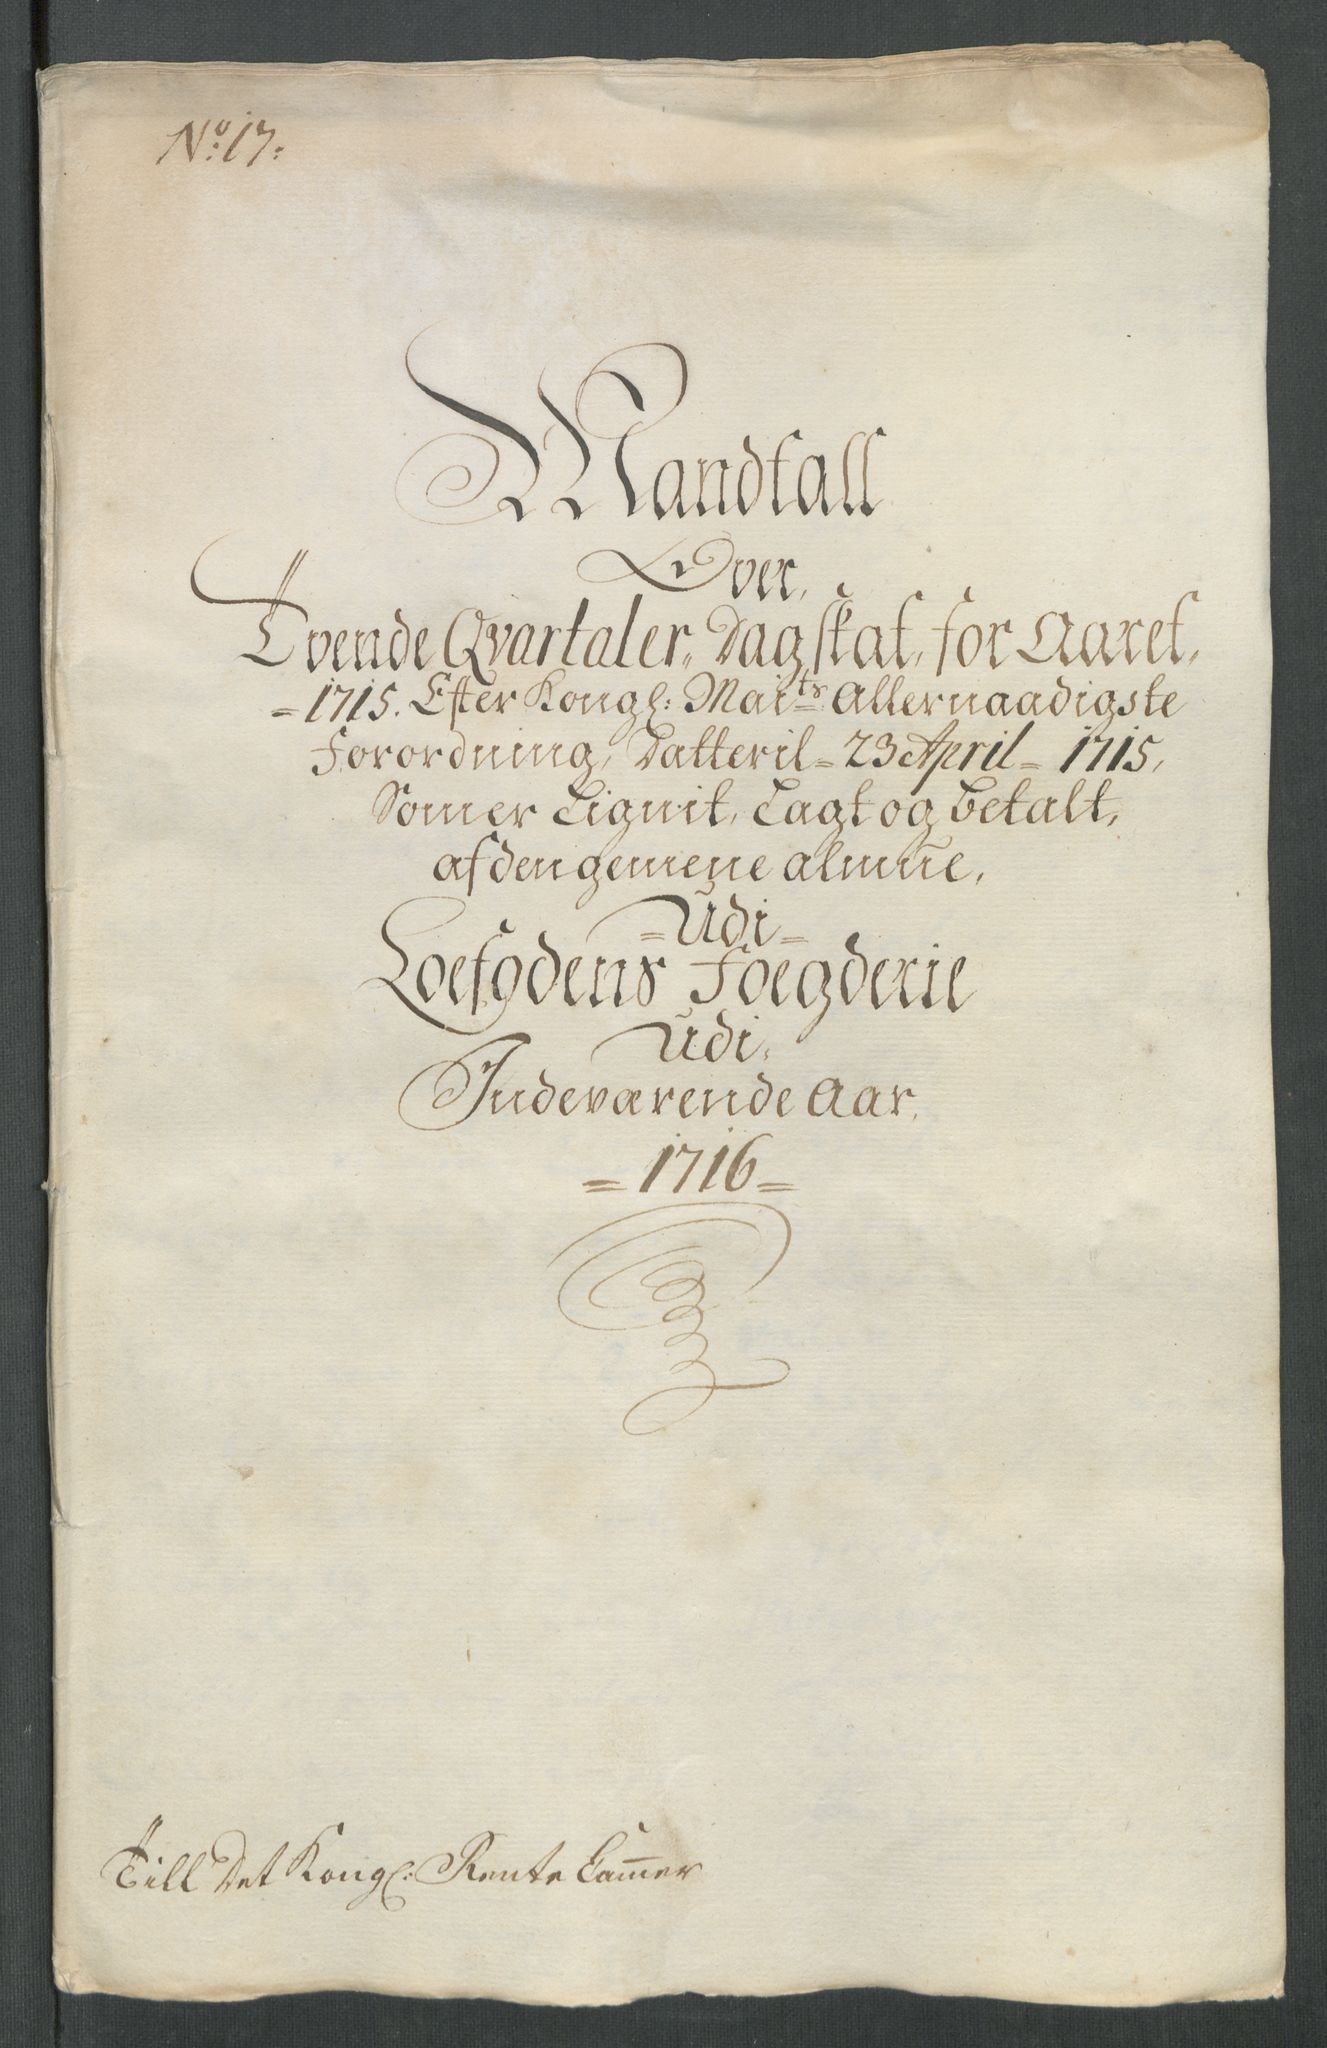 No: 17:
Mandtall
Over,
Tvende Qvartaler, Dagskat, for Aaret,
=1715. Efter Kongl: Maits Allernaadigste
Forordning, Datteril= 23 April= 1715,
Som er Lignit, Lagt og betalt,
af den gemene almue,
=Udi=
Loefodens Foegderie
Udi,
Indeværende Aar,
=1716=
Till Det Kongl: Rente Camer